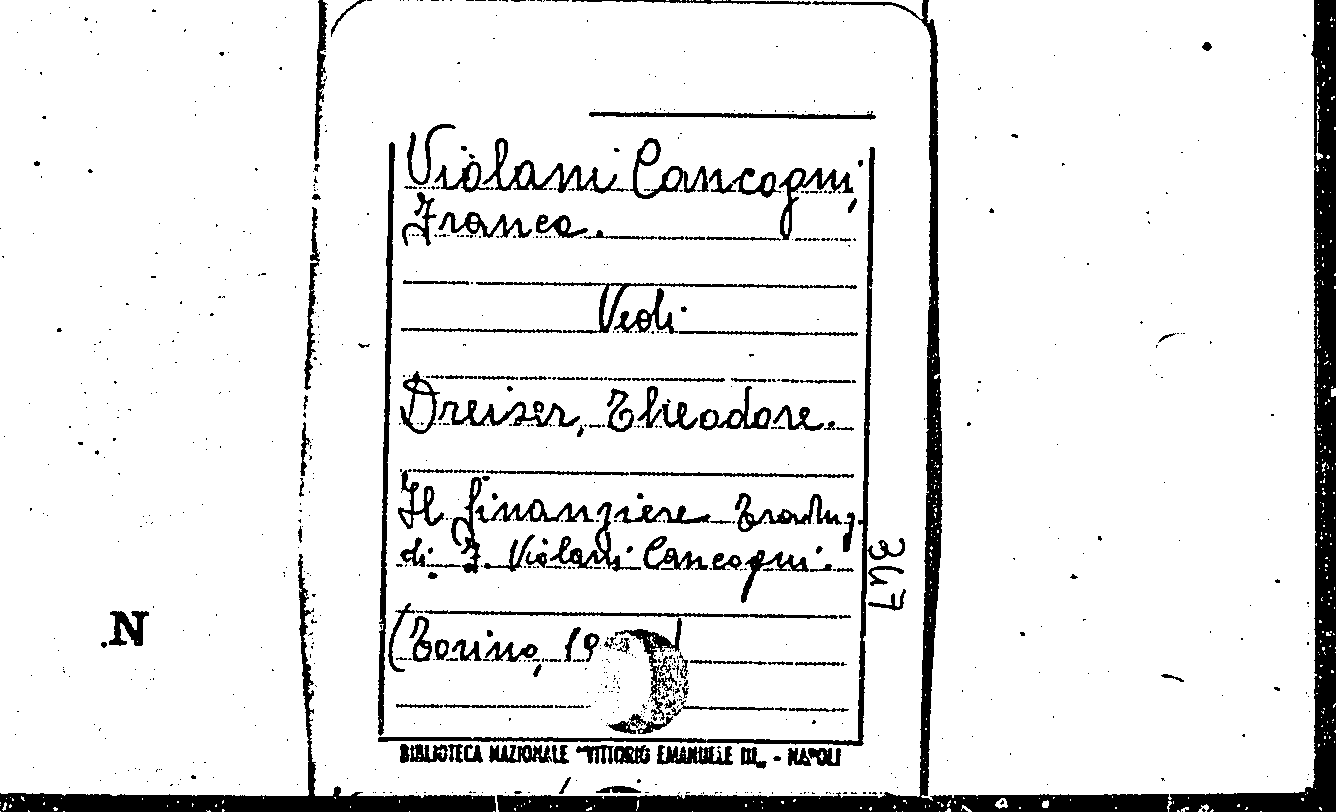 Violani Cancogni,
Franca.
Vedi
Dreiser, Theodore.
Il finanziere Traduz.
di F. Violani Cancogni.
(Torino, 19
347
N
BIBLIOTECA NAZIONALE "VITTORIO EMANUELE III" - NAPOLI